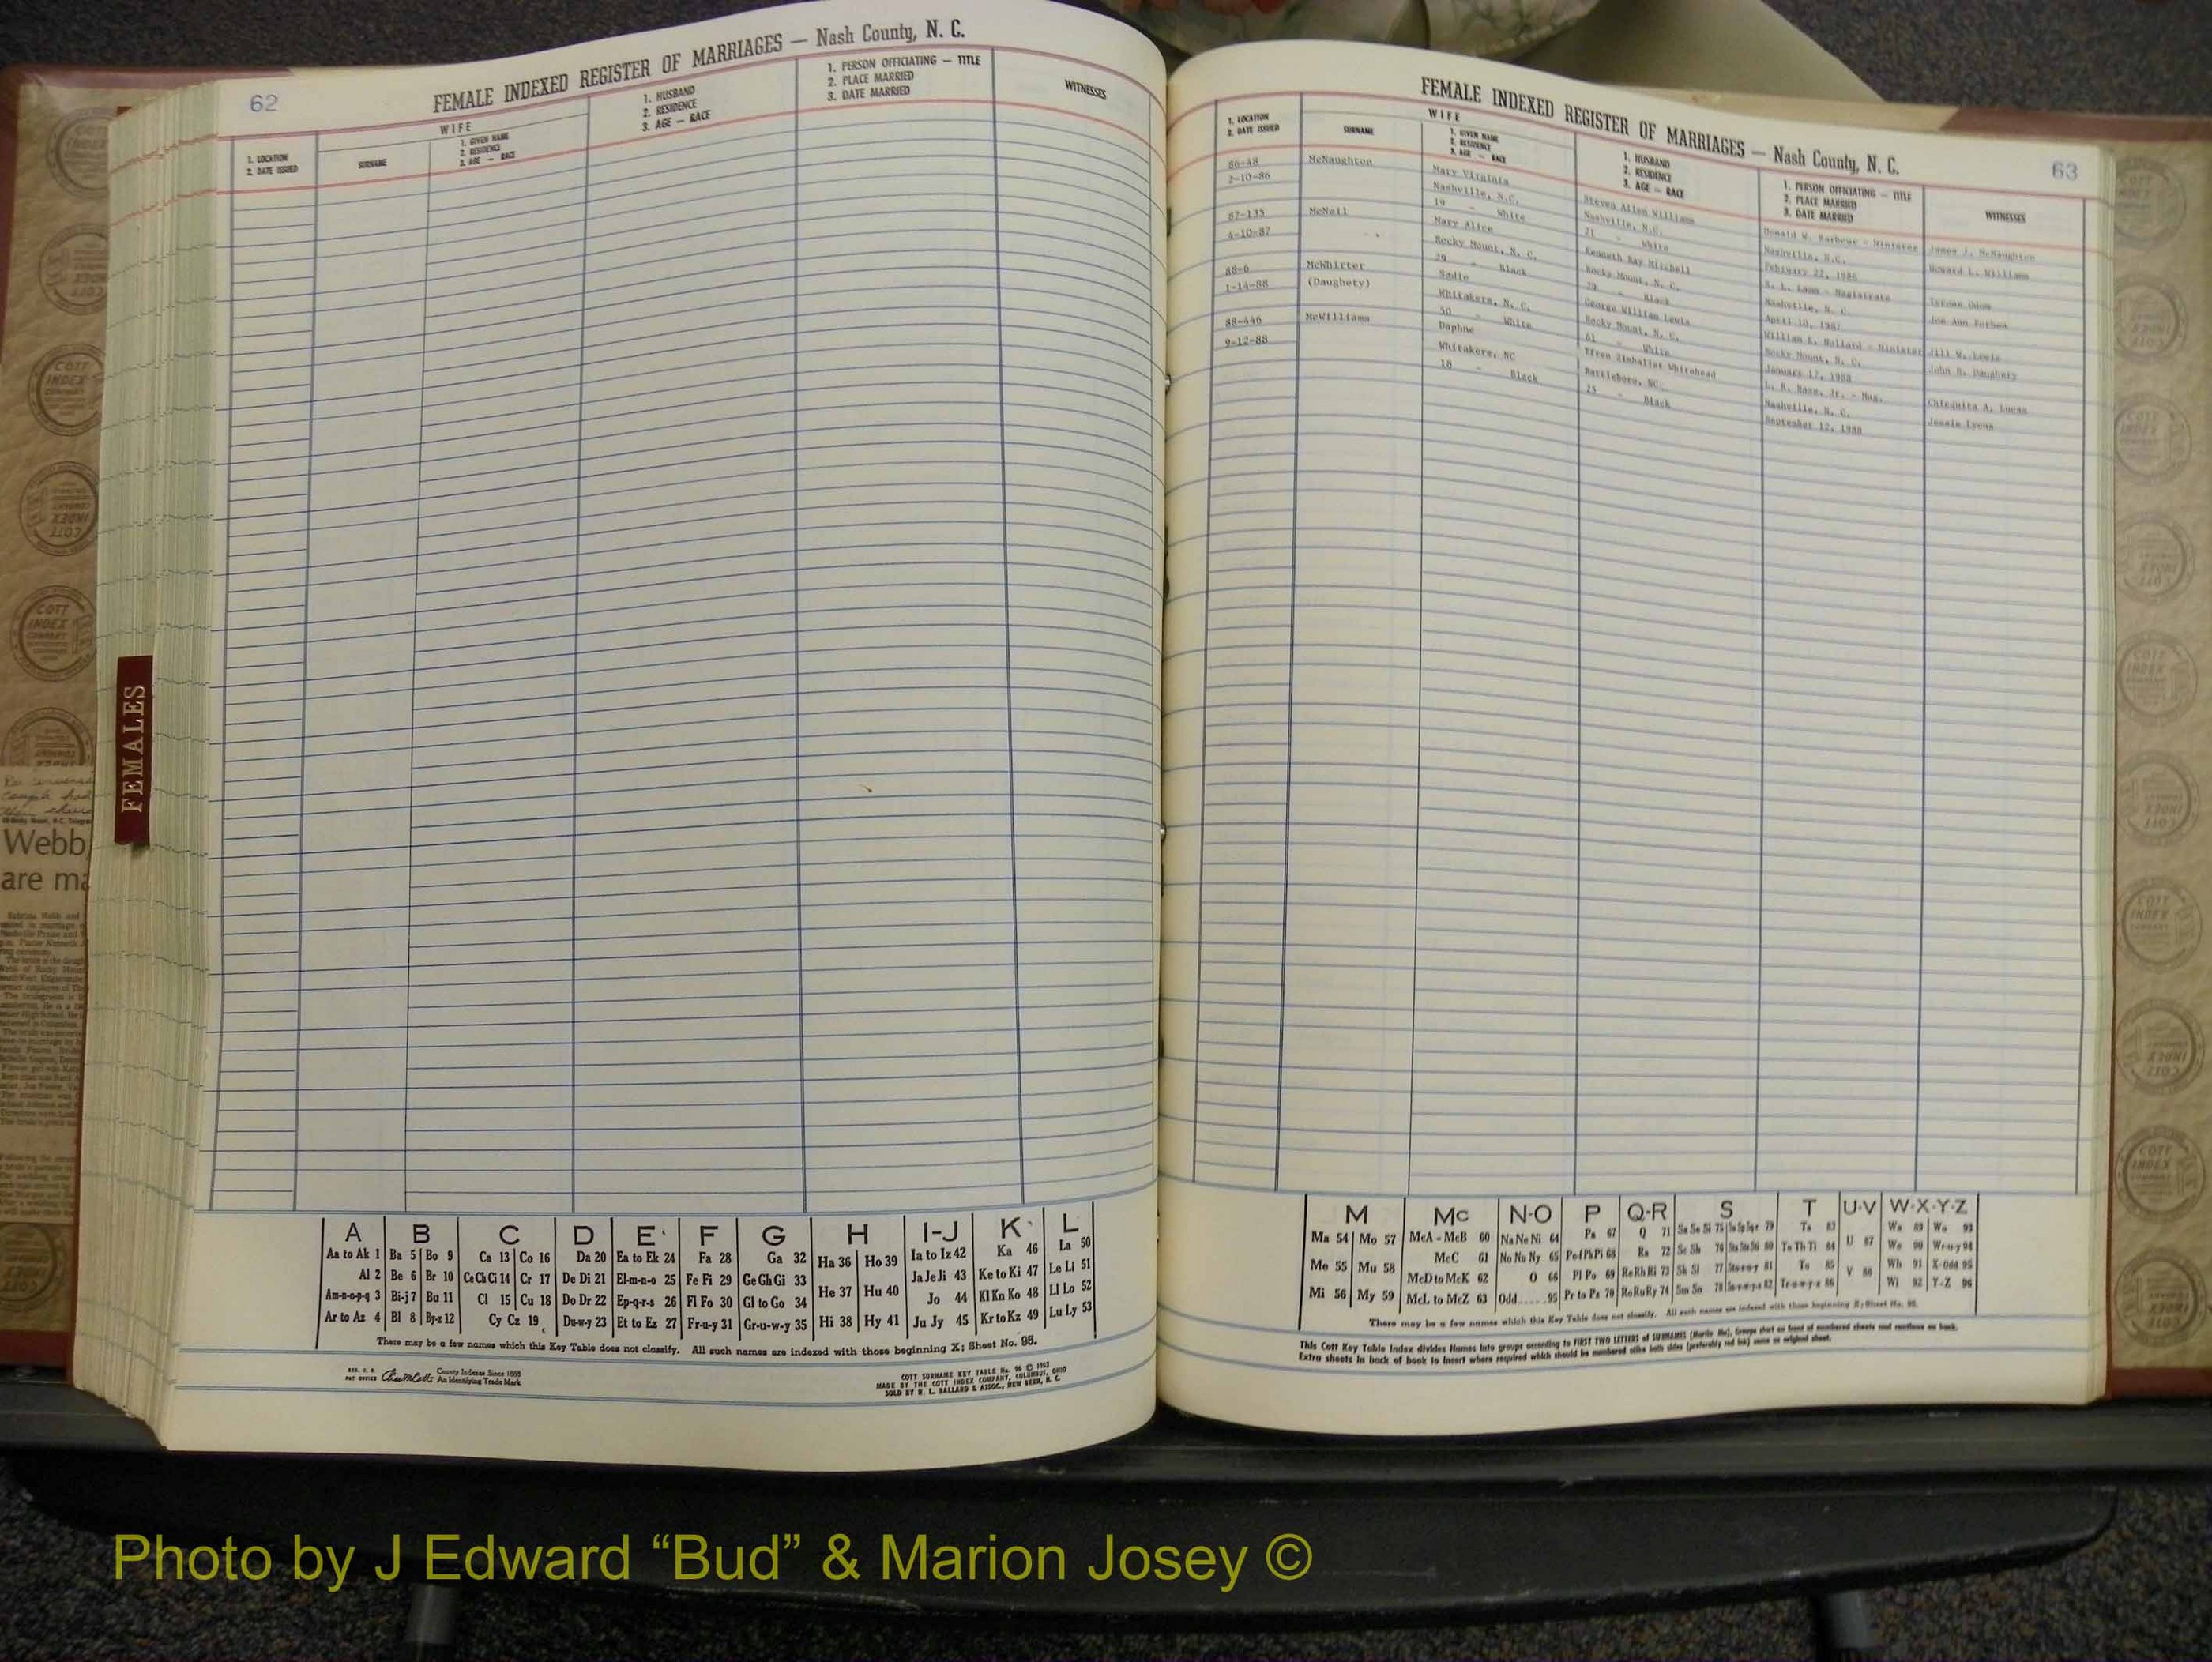 62
FEMALE INDEXED REGISTER OF MARRIAGES — Nash County, N. C.
1. LOCATION
2. DATE ISSUED
WIFE
SURNAME
1. GIVEN NAME
2. RESIDENCE
3. AGE — RACE
1. HUSBAND
2. RESIDENCE
3. AGE — RACE
1. PERSON OFFICIATING — TITLE
2. PLACE MARRIED
3. DATE MARRIED
WITNESSES
FEMALES
Webb,
are ma
A B C D E F G H I-J K L
Aa to Ak 1 Ba 5 Bo 9 Ca 13 Co 16 Da 20 Ea to Ek 24 Fa 28 Ga 32 Ha 36 Ho 39 Ia to Iz 42 Ka 46 La 50
Al 2 Be 6 Br 10 Ce Ch Ci 14 Cr 17 De Di 21 El-m-n-o 25 Fe Fi 29 Ge Gh Gi 33 He 37 Hu 40 Ja Je Ji 43 Ke to Ki 47 Le Li 51
Am-n-o-p-q 3 Bi-j 7 Bu 11 Cl 15 Cu 18 Do Dr 22 Ep-q-r-s 26 Fl Fo 30 Gl to Go 34 Hi 38 Hy 41 Jo 44 Kl Kn Ko 48 Ll Lo 52
Ar to Az 4 Bl 8 By-z 12 Cy Cz 19 Du-w-y 23 Et to Ez 27 Fr-u-y 31 Gr-u-w-y 35 Ju Jy 45 Kr to Kz 49 Lu Ly 53
There may be a few names which this Key Table does not classify. All such names are indexed with those beginning X; Sheet No. 95.
REG. U. S.
PAT OFFICE
County Indexes Since 1888
An Identifying Trade Mark
COTT SURNAME KEY TABLE No. 96 © 1963
MADE BY THE COTT INDEX COMPANY, COLUMBUS, OHIO
SOLD BY R. L. BALLARD & ASSOC., NEW BERN, N. C.
FEMALE INDEXED REGISTER OF MARRIAGES — Nash County, N. C.
63
1. LOCATION
2. DATE ISSUED
WIFE
SURNAME
1. GIVEN NAME
2. RESIDENCE
3. AGE — RACE
1. HUSBAND
2. RESIDENCE
3. AGE — RACE
1. PERSON OFFICIATING — TITLE
2. PLACE MARRIED
3. DATE MARRIED
WITNESSES
86-48 McNaughton Mary Virginia Steven Allen Williams Donald W. Barbour - Minister James J. McNaughton
2-10-86 Nashville, N.C. Nashville, N.C. Nashville, N.C. Howard L. Williams
19 - White 21 - White February 22, 1986
87-135 McNeil Mary Alice Kenneth Ray Mitchell Magistrate Tyrone Odom
4-10-87 Rocky Mount, N. C. Rocky Mount, N. C. Nashville, N. C. Joe Ann Forbes
29 - Black 29 - Black April 10, 1987
88-6 McWhirter Sadie George William Lewis William K. Bullard - Minister Jill W. Lewis
1-14-88 (Daughety) Whitakers, N. C. Rocky Mount, N. C. Rocky Mount, N. C. John B. Daughety
50 - White 61 - White January 17, 1988
88-446 McWilliams Daphne Efrem Zimbalist Whitehead Jr. - Mag. Chiequita A. Lucas
9-12-88 Whitakers, NC Battleboro, NC Nashville, N. C. Jessie Lyons
18 - Black 25 - Black September 12, 1988
M Mc N-O P Q-R S T U-V W-X-Y-Z
Ma 54 Mo 57 McA - McB 60 Na Ne Ni 64 Pa 67 Q 71 Ta 83 Wa 89 Wo 93
Me 55 Mu 58 McC 61 No Nu Ny 65 Pe-f Ph Pi 68 Ra 72 Te Th Ti 84 U 87 We 90 Wr-u-y 94
Mi 56 My 59 McD to McK 62 O 66 Pl Po 69 Re Rh Ri 73 To 85 V 88 Wh 91 X-Odd 95
McL to McZ 63 Odd......95 Pr to Ps 70 Ro Ru Ry 74 Tr-u-w-y-z 86 Wi 92 Y-Z 96
There may be a few names which this Key Table does not classify. All such names are indexed with those beginning X; Sheet No. 95.
This Cott Key Table Index divides Names into groups according to FIRST TWO LETTERS of SURNAMES (Martin Ma). Groups start on front of numbered sheets and continue on back.
Extra sheets in back of book to insert where required which should be numbered alike both sides (preferably red ink) same as original sheet.
Photo by J Edward “Bud” & Marion Josey ©